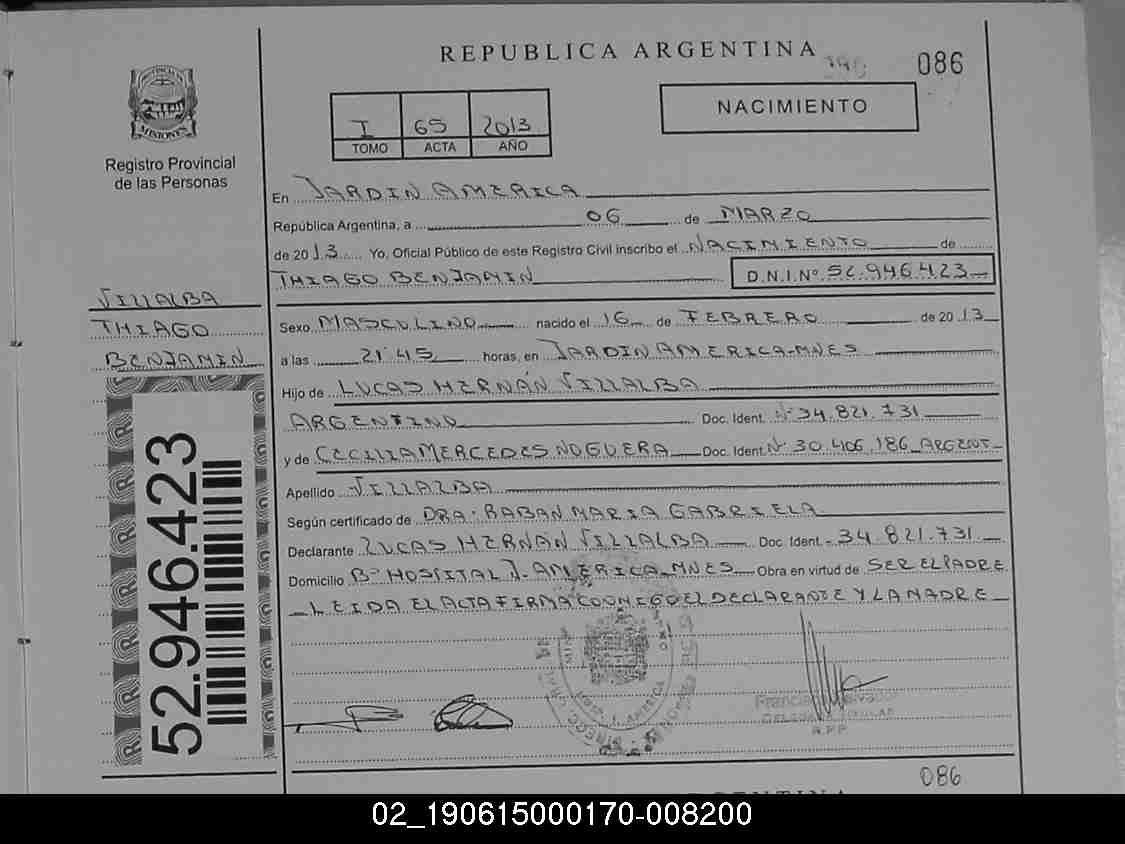 REPUBLICA ARGENTINA
086
NACIMIENTO
I 65 2013
TOMO ACTA AÑO
PROVINCIA DE
MISIONES
Registro Provincial
de las Personas
En JARDIN AMERICA
República Argentina, a 06 de MARZO
de 2013 Yo, Oficial Público de este Registro Civil inscribo el NACIMIENTO de
THIAGO BENJAMIN D.N.I.Nº 52.946.423
VILLALBA
THIAGO
BENJAMIN
52.946.423
Sexo MASCULINO nacido el 16 de FEBRERO de 2013
a las 21:45 horas, en JARDIN AMERICA-MNES
Hijo de LUCAS HERNÁN VILLALBA
ARGENTINO Doc. Ident. Nº 34.821.731
y de CECILIA MERCEDES NOGUERA Doc. Ident. Nº 30.406.186 ARGENT-
Apellido VILLALBA
Según certificado de DRA. BABAN MARIA GABRIELA
Declarante LUCAS HERNÁN VILLALBA Doc. Ident. 34.821.731
Domicilio Bº HOSPITAL J. AMERICA MNES Obra en virtud de SER EL PADRE
LEIDA EL ACTA FIRMA CONMIGO EL DECLARANTE Y LA MADRE
J. AMERICA
R.P.P
086
02_190615000170-008200